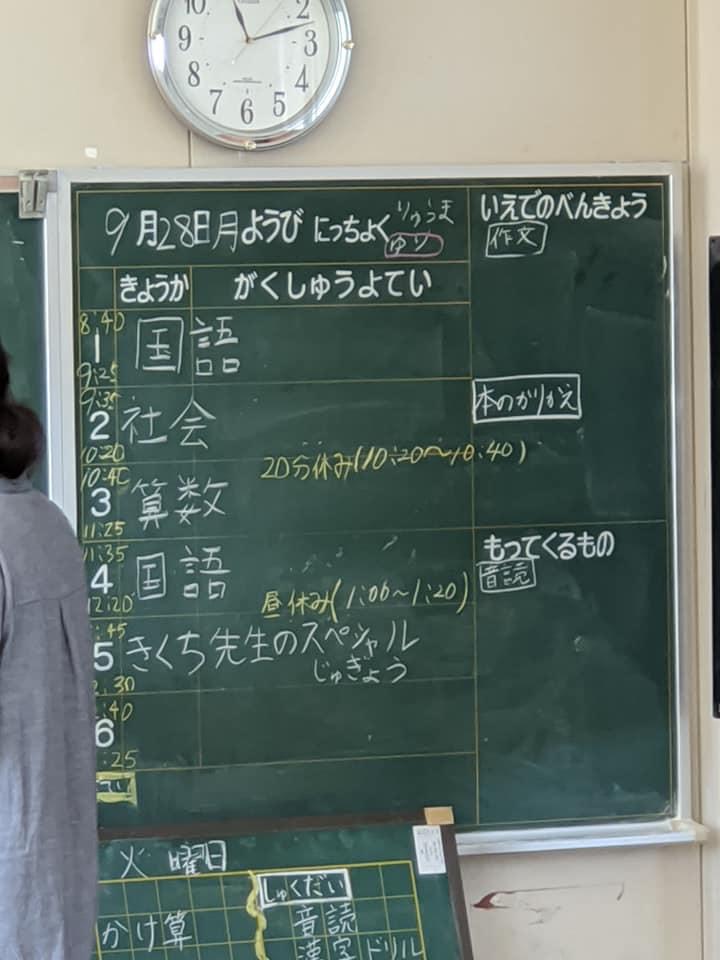 10 2
9 3
8 4
7 6 5
9月28日月ようび にっちょく りゅうま
ゆり
きょうか がくしゅうよてい
8:40
1 国語
9:25
9:35
2 社会
10:20
20分休み(10:20〜10:40)
10:40
3 算数
11:25
11:35
4 国語
12:20
昼休み(1:00〜1:20)
:45
5 きくち先生のスペシャル
じゅぎょう
:30
:40
6
:25
いえでのべんきょう
作文
本のかりかえ
もってくるもの
音読
火曜日
しゅくだい
かけ算 音読
漢字ドリル